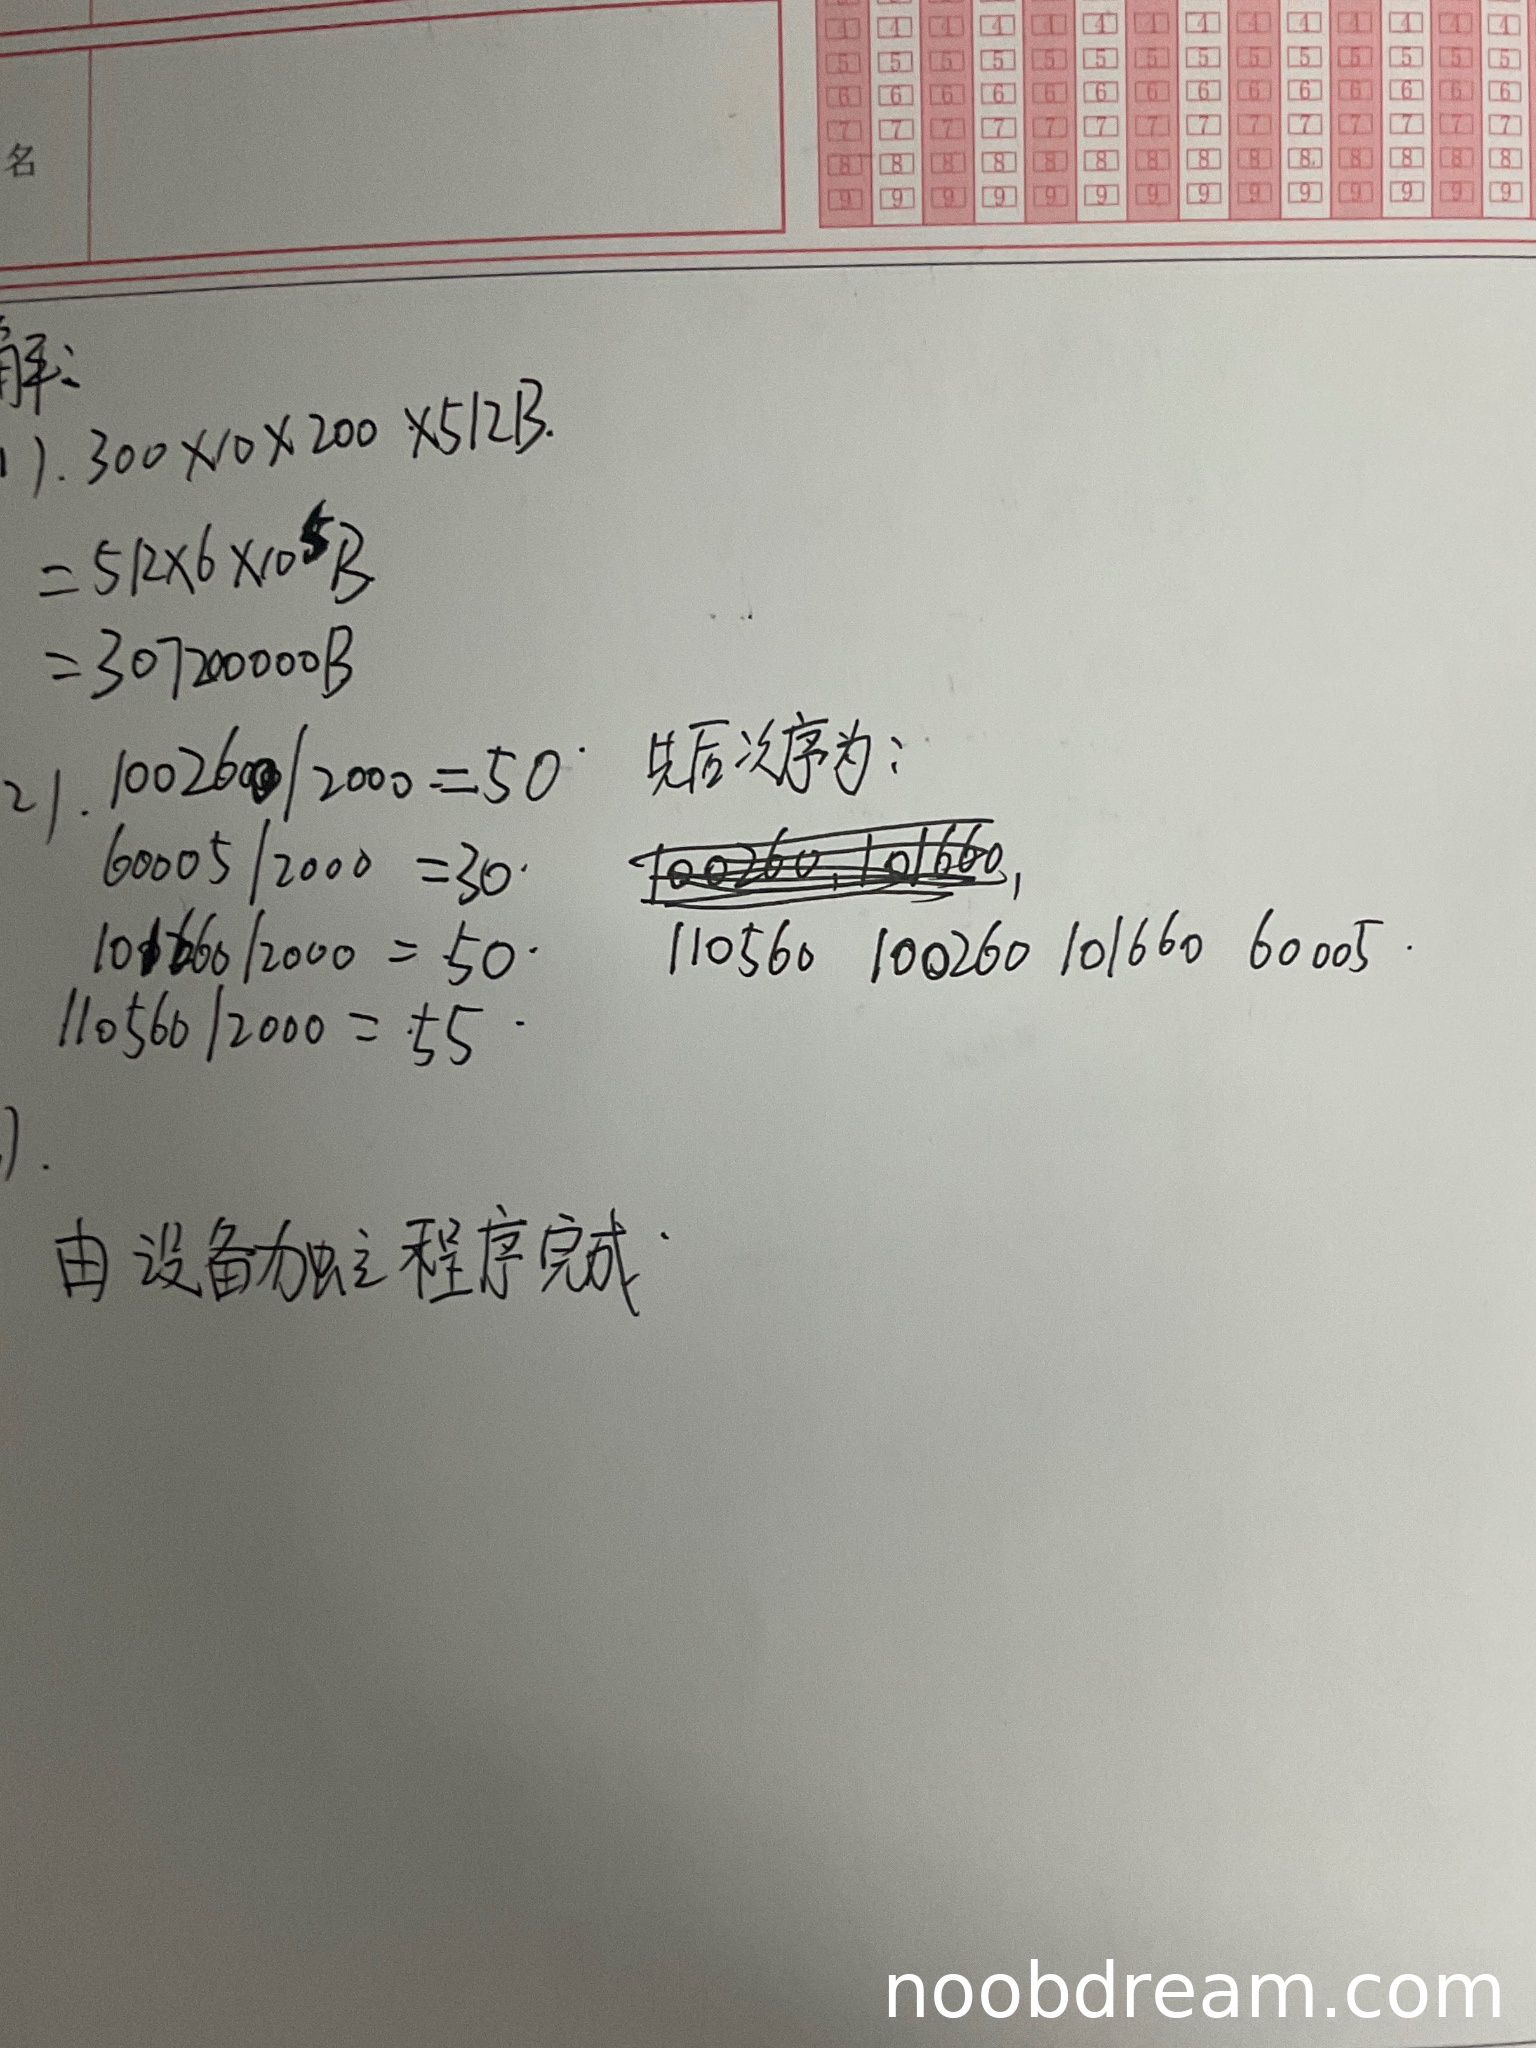 4 4 4 4 4 4 4 4 4 4 4 4 4 4
5 5 5 5 5 5 5 5 5 5 5 5 5 5
6 6 6 6 6 6 6 6 6 6 6 6 6 6
7 7 7 7 7 7 7 7 7 7 7 7 7 7
8 8 8 8 8 8 8 8 8 8 8 8 8 8
9 9 9 9 9 9 9 9 9 9 9 9 9 9
名
解:
1). 300×10×200×512B.
=512×6×10⁵B
=307200000B
2). 100260/2000=50. 先后次序为:
60005/2000=30. 100260, 101660,
101660/2000=50. 110560 100260 101660 60005.
110560/2000=55.
).
由设备独立程序完成.
noobdream.com